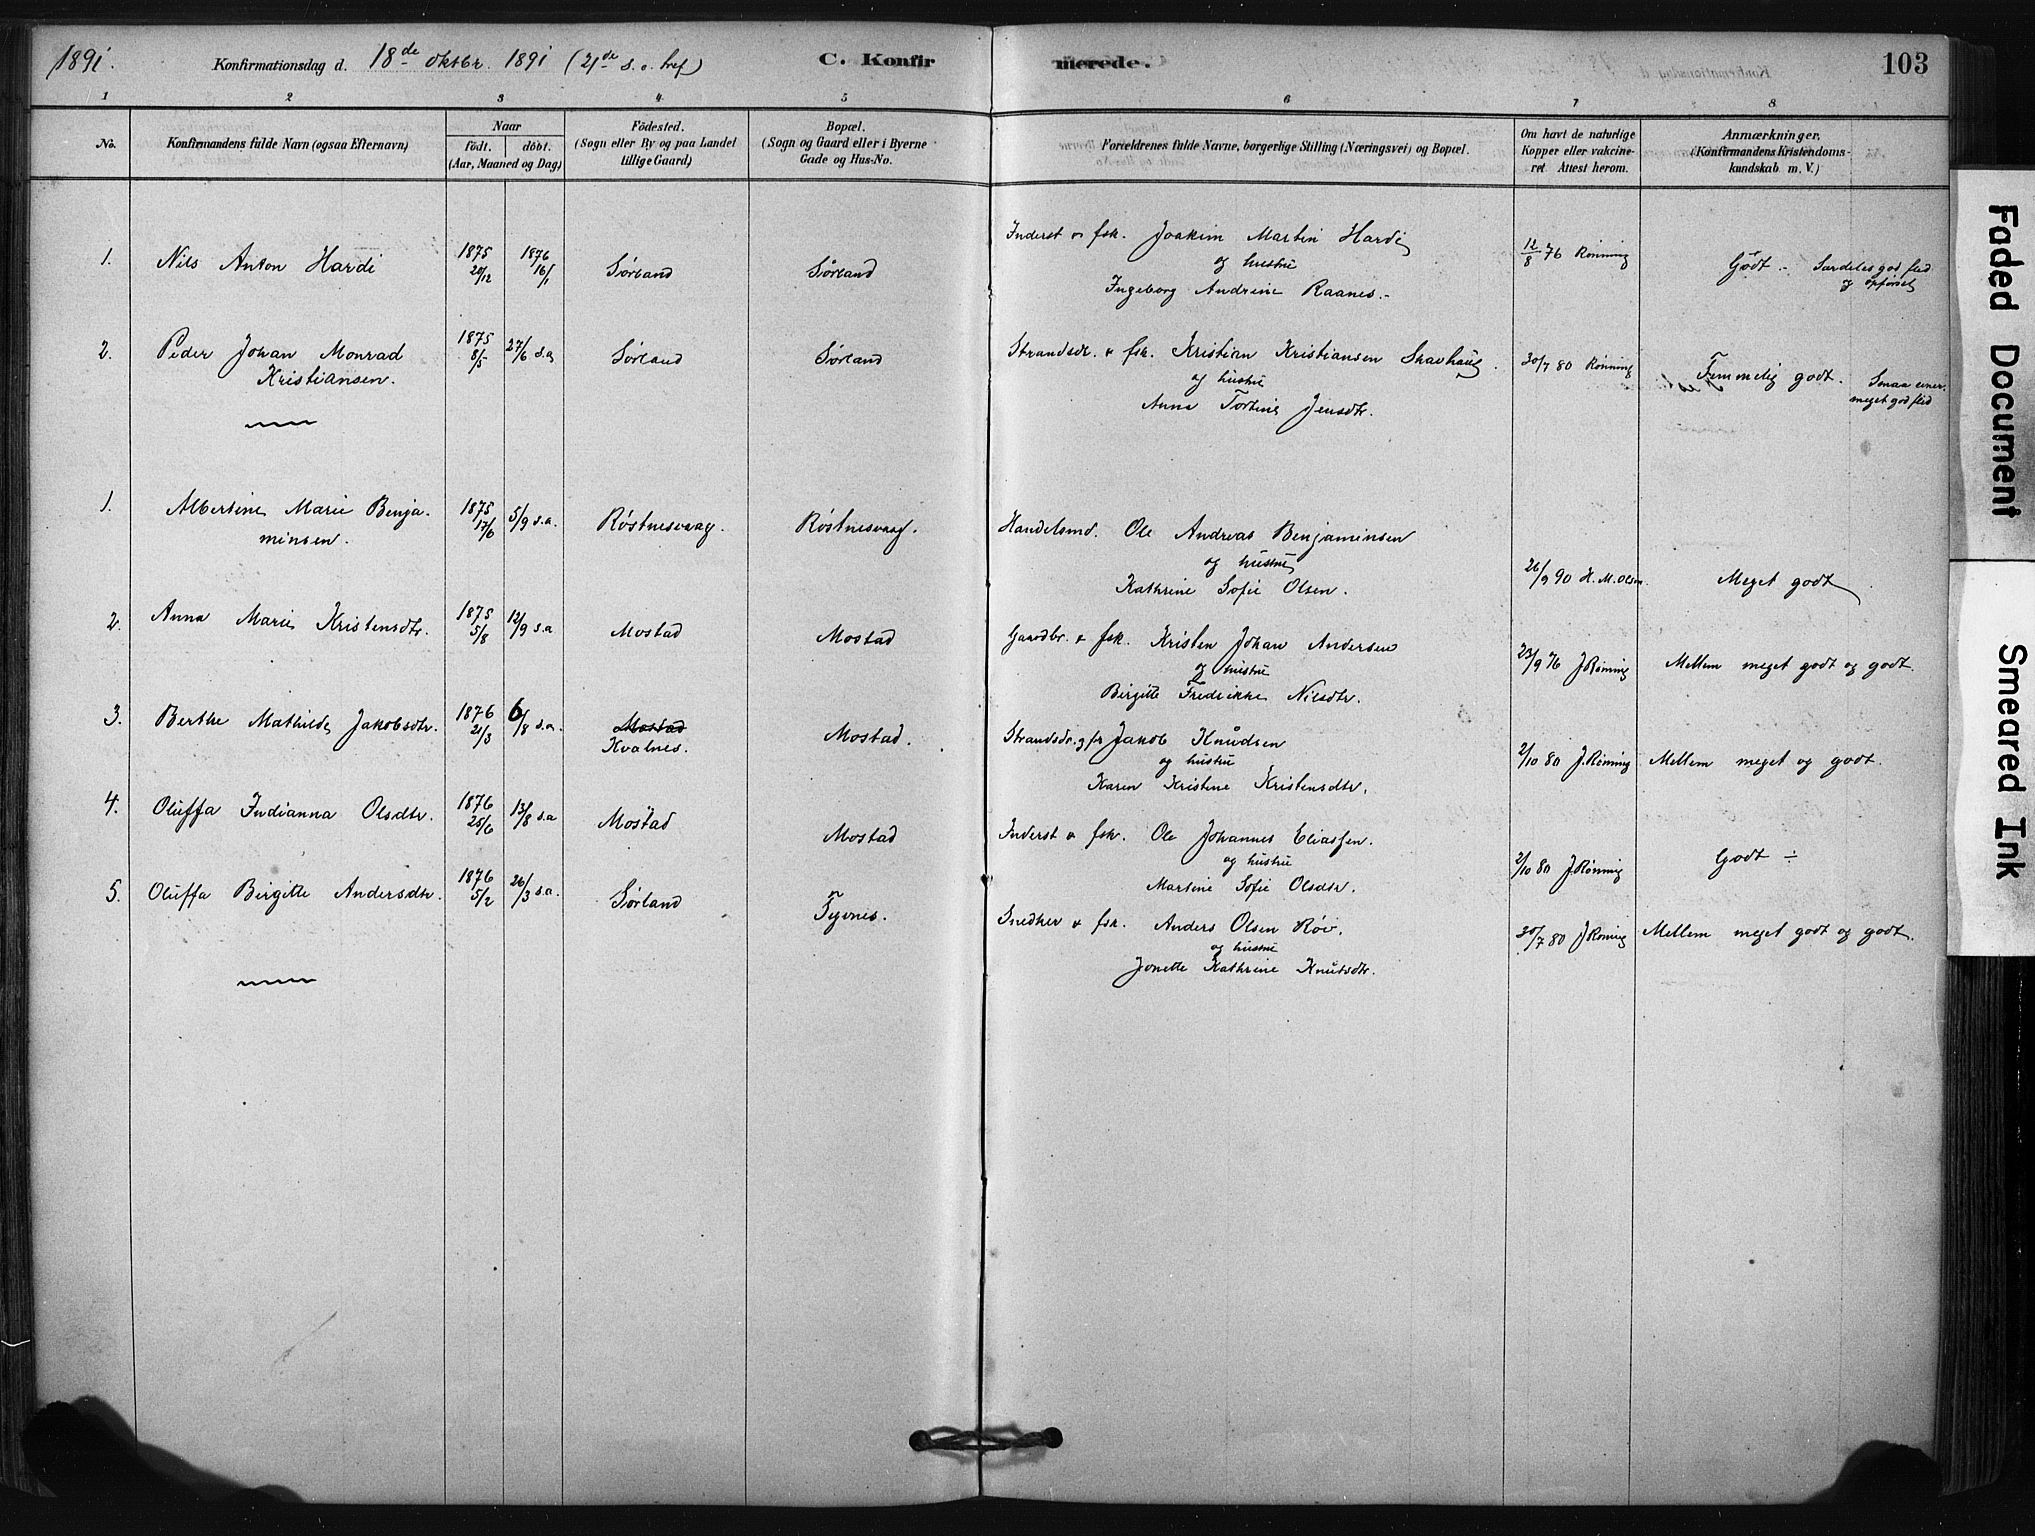 1891. Konfirmationsdag d. 18de oktbr. 1891 (21de S. e. tref) C. Konfirmerede. 103
1 2 3 4 5 6 7 8
No. Konfirmandens fulde Navn (ogsaa Efternavn) Naar födt. döbt. (Aar, Maaned og Dag) Födested. (Sogn eller By og paa Landet tillige Gaard) Bopæl. (Sogn og Gaard eller i Byerne Gade og Hus-No. Forældrenes fulde Navne, borgerlige Stilling (Næringsvei) og Bopæl. Om havt de naturlige Kopper eller vakcineret Attest herom. Anmærkninger. (Konfirmandens Kristendomskundskab m. V.)
1. Nils Anton Hardi 1875 20/12 1876 16/1 Sørland Sørland Inderst & fsk. Joakim Martin Hardi 12/8 76 Rønning Godt - Særdeles god flid og opførsel
og hustru
Ingeborg Andrine Raanes.-
2. Peder Johan Monrad 1875 8/5 27/6 s.a Sørland Sørland Strandsdr. & fsk. Kristian Kristiansen Skavhaug. 30/7 80 Rønning Temmelig godt. Smaa evner. meget god flid
Kristiansen. og hustru
Anna Tortine Jensdtr.
1. Albertine Marie Benja- 1875 17/6 5/9 s.a. Røstnesvaag. Røstnesvaag. Handelsmd. Ole Andreas Benjaminsen
minsen. og hustru
Kathrine Sofie Olsen. 26/9 90 H. M. Olsen. Meget godt
2. Anna Marie Kristensdtr. 1875 5/8 12/9 s.a Mostad Mostad Gaardbr. & fsk. Kristen Johan Andersen 23/9 76 J Rønning Mellem meget godt og godt.
og hustru
Birgitte Fredrikke Nilsdtr.
3. Berthe Mathilde Jakobsdtr. 1876 21/3 6/8 s.a. Mostad Mostad. Strandsdr. & fsk Jakob Knudsen 2/10 80 J. Rønning Mellem meget og godt.
Kvalnes. og hustru
Karen Kristine Kristensdtr.
4. Oluffa Indianna Olsdtr. 1876 25/6 13/8 s.a Mostad Mostad Inderst & fsk. Ole Johannes Eliassen. 2/10 80 J. Rønning Godt ÷
og hustru
Martine Sofie Olsdtr.
5. Oluffa Birgitte Andersdtr. 1876 5/2 26/3 s.a. Sørland Tyvnes. Snedker & fsk. Anders Olsen Røv. 30/7 80 J Rønning Mellem meget godt og godt.
og hustru
Jonette Kathrine Knutsdtr.
Faded Document
Smeared Ink